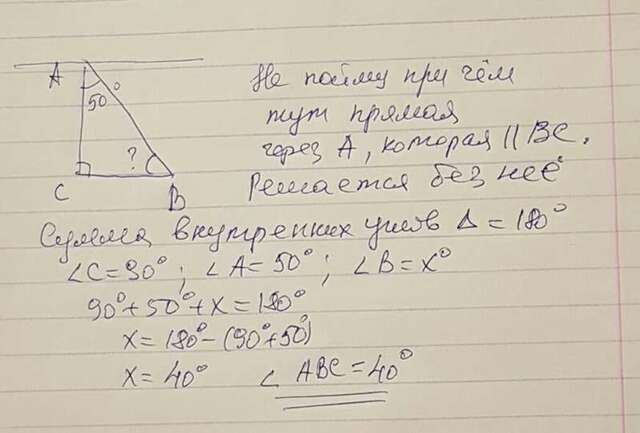 A
50°
?
C
B
Не пойму при чём
тут прямая
через А, которая || ВС.
Решается без неё
Сумма внутренних углов Δ = 180°
∠C=90° ; ∠A=50° ; ∠B=x°
90°+50°+x=180°
x=180°-(90°+50°)
x=40° ∠ ABC=40°